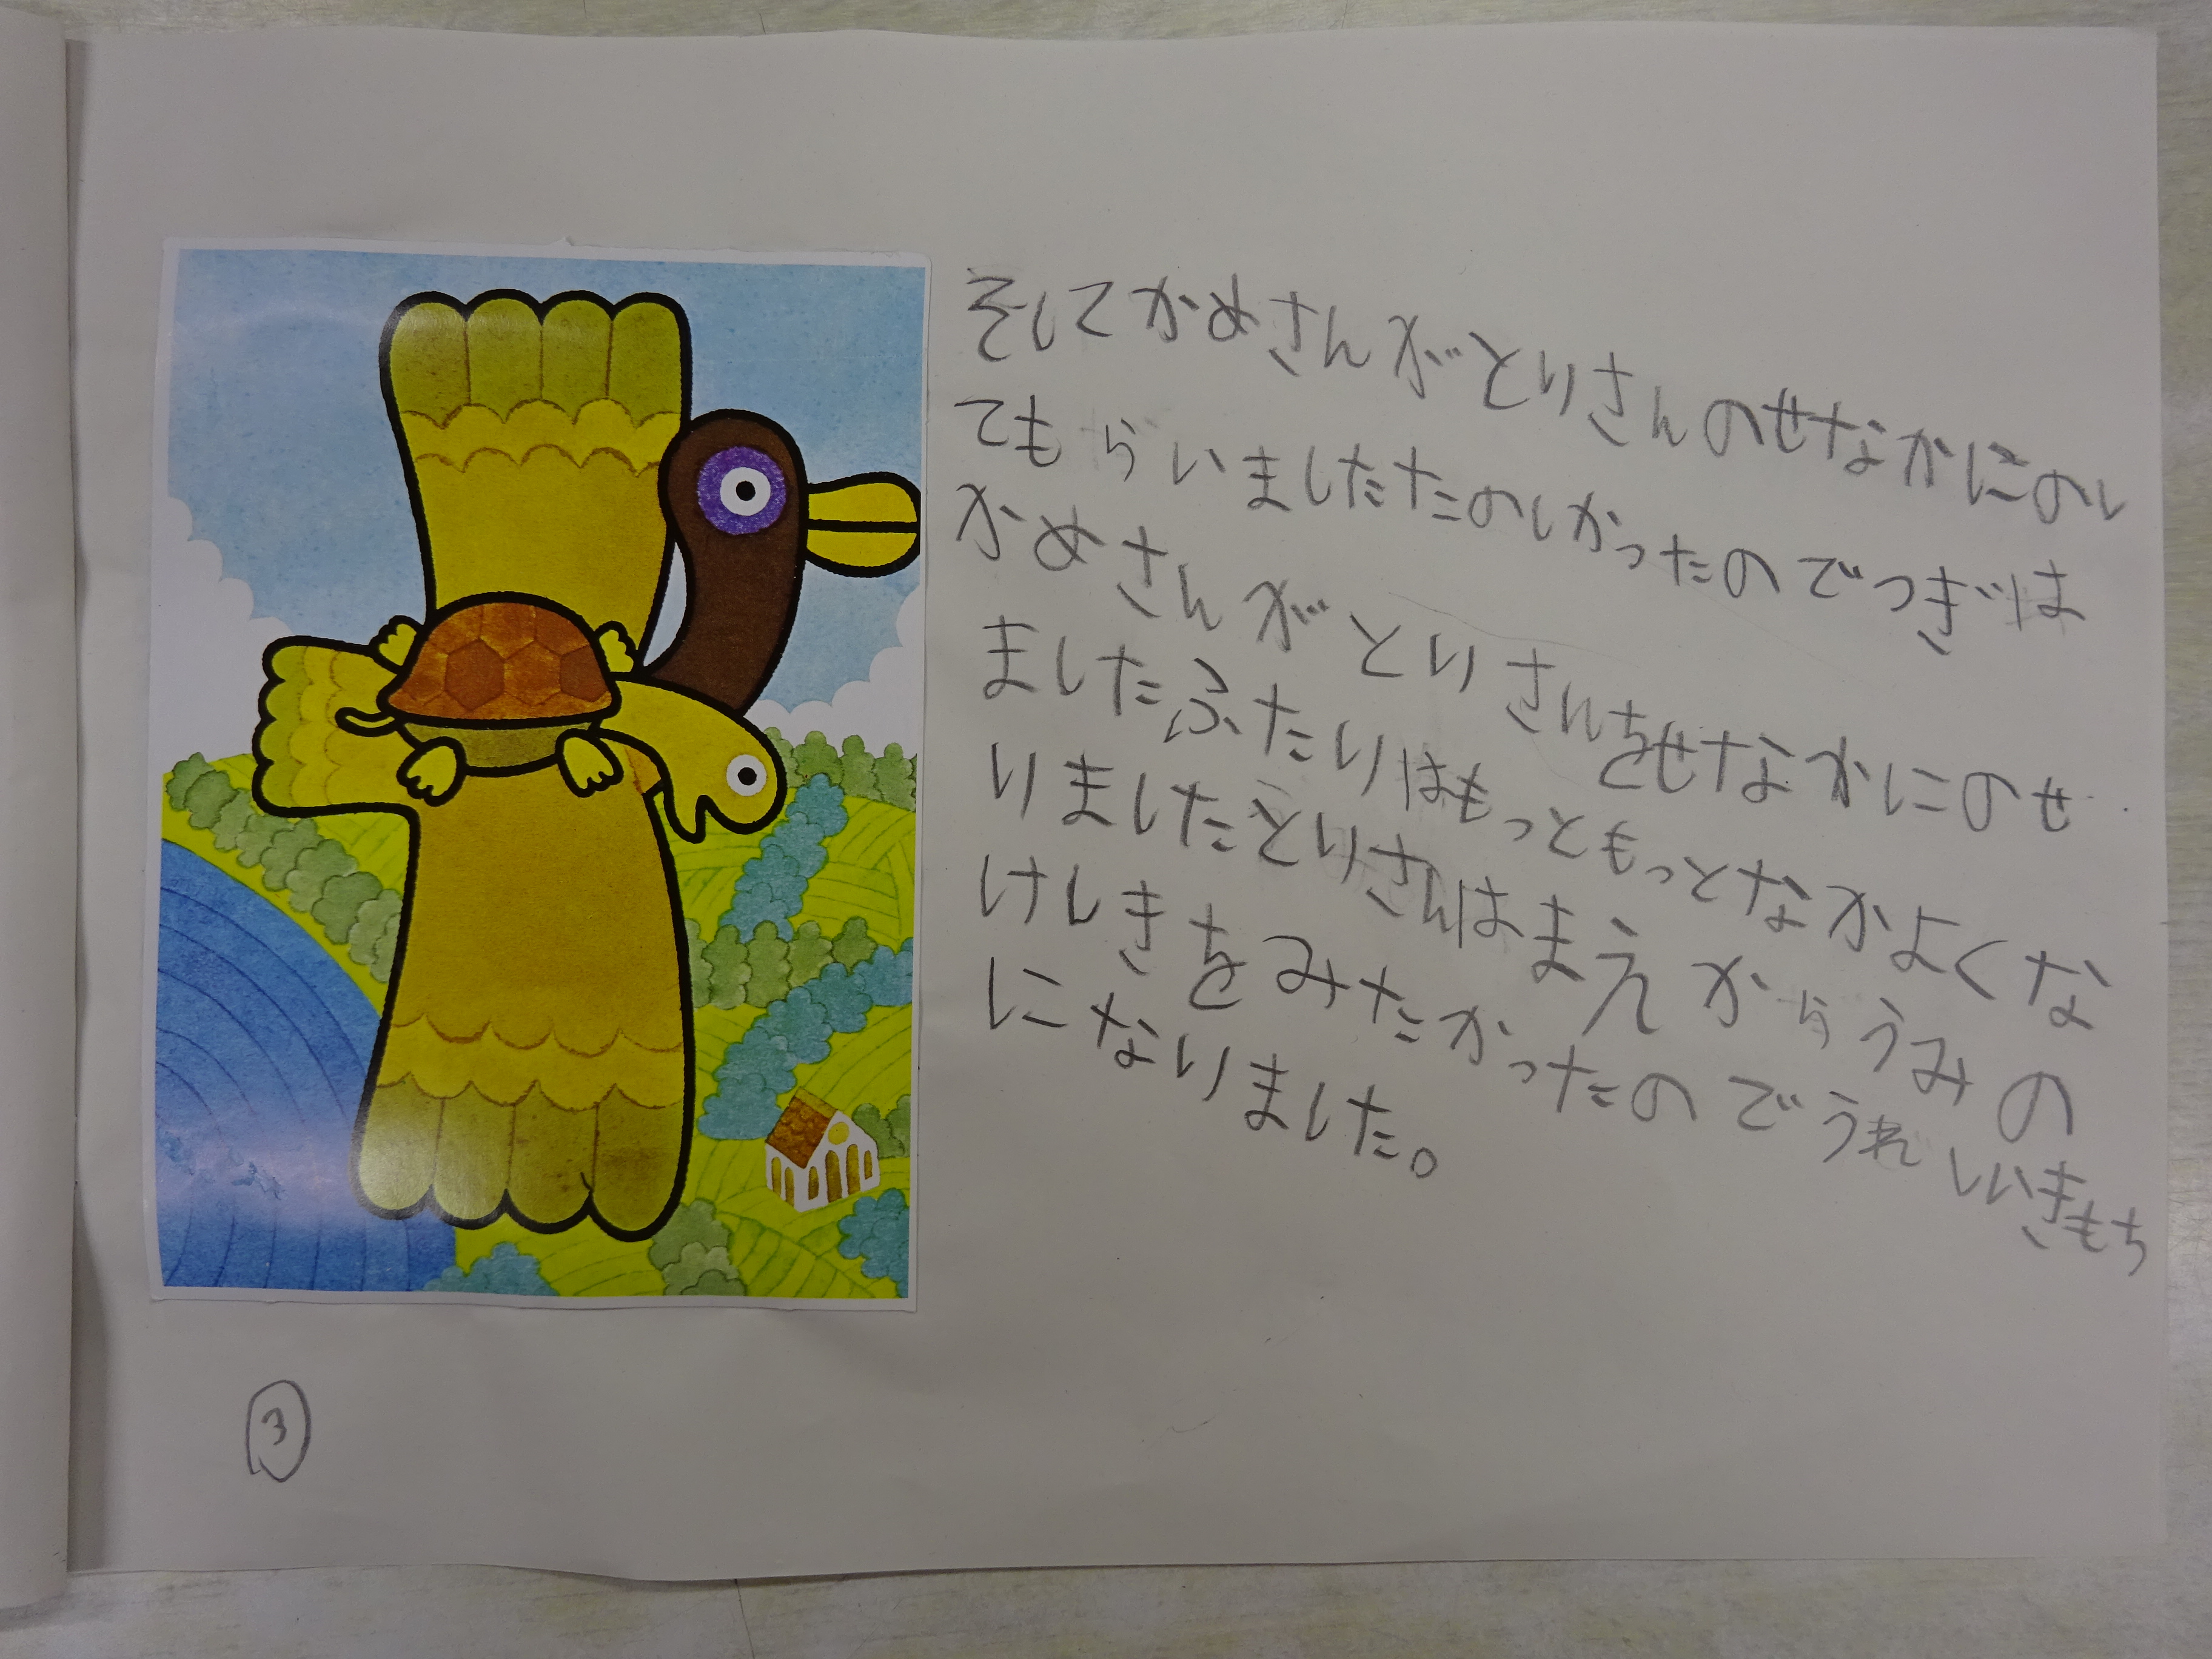 そしてかめさんがとりさんのせなかにのし
てもらいましたたのしかったのでつぎは
かめさんがとりさんをせなかにのせ
ましたふたりはもっともっとなかよくな
りましたとりさんはまえからうみの
けしきをみたかったのでうれしいきもち
になりました。
③